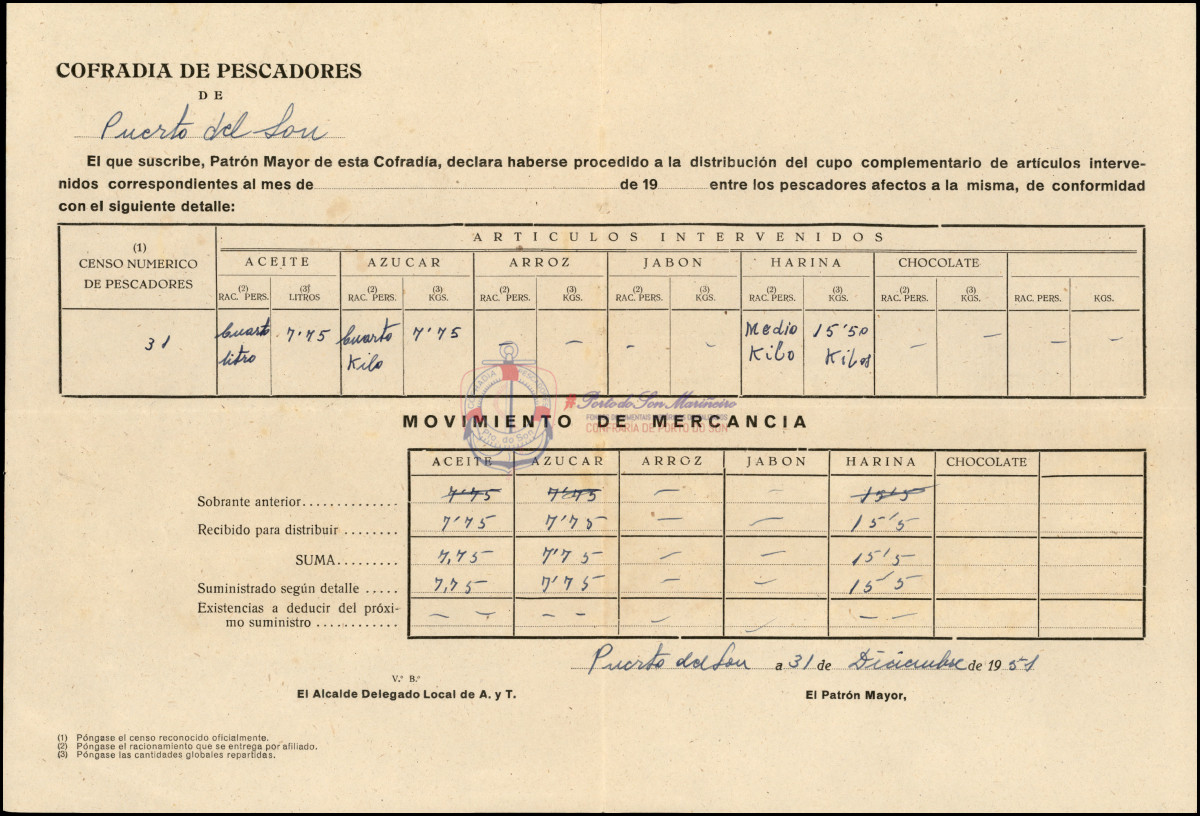 COFRADIA DE PESCADORES
DE
Puerto del Son
El que suscribe, Patrón Mayor de esta Cofradía, declara haberse procedido a la distribución del cupo complementario de artículos interve-
nidos correspondientes al mes de de 19 entre los pescadores afectos a la misma, de conformidad
con el siguiente detalle:
(1) CENSO NUMERICO DE PESCADORES
ARTICULOS INTERVENIDOS
ACEITE AZUCAR ARROZ JABON HARINA CHOCOLATE
(2) RAC. PERS. (3) LITROS (2) RAC. PERS. (3) KGS. (2) RAC. PERS. (3) KGS. (2) RAC. PERS. (3) KGS. (2) RAC. PERS. (3) KGS. (2) RAC. PERS. (3) KGS. RAC. PERS. KGS.
31 Cuarto litro 7'75 Cuarto Kilo 7'75 — — — — Medio Kilo 15'50 Kilos — — — —
COFRADIA PESCADORES
Pto. do Son
#Porto do Son Mariñeiro
CONFRARÍA DE PORTO DO SON
MOVIMIENTO DE MERCANCIA
ACEITE AZUCAR ARROZ JABON HARINA CHOCOLATE
Sobrante anterior.............. 7'75 7'75 — — 15'5
Recibido para distribuir ........ 7'75 7'75 — — 15'5
SUMA......... 7,75 7'75 — — 15'5
Suministrado según detalle ..... 7,75 7'75 — — 15'5
Existencias a deducir del próxi-
mo suministro ............ — — — — — — — —
Puerto del Son a 31 de Diciembre de 1951
V.º B.º
El Alcalde Delegado Local de A. y T. El Patrón Mayor,
(1) Póngase el censo reconocido oficialmente.
(2) Póngase el racionamiento que se entrega por afiliado.
(3) Póngase las cantidades globales repartidas.